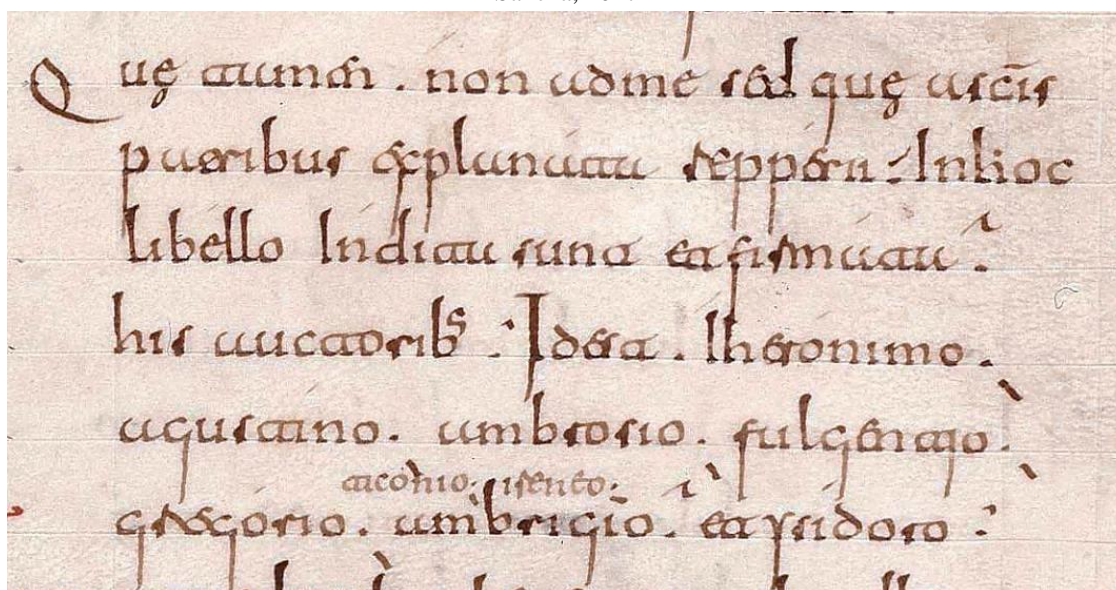 Quę tamen . non adme sed quę ascīs
patribus explanata repperi : Inhoc
libello Indita sunt et firmata :
his auctoribs : Idest . Iheronimo .
agustino . ambrosio . fulgentjo .
ireneo .
gregorio . ambrigio . et ysidoro :